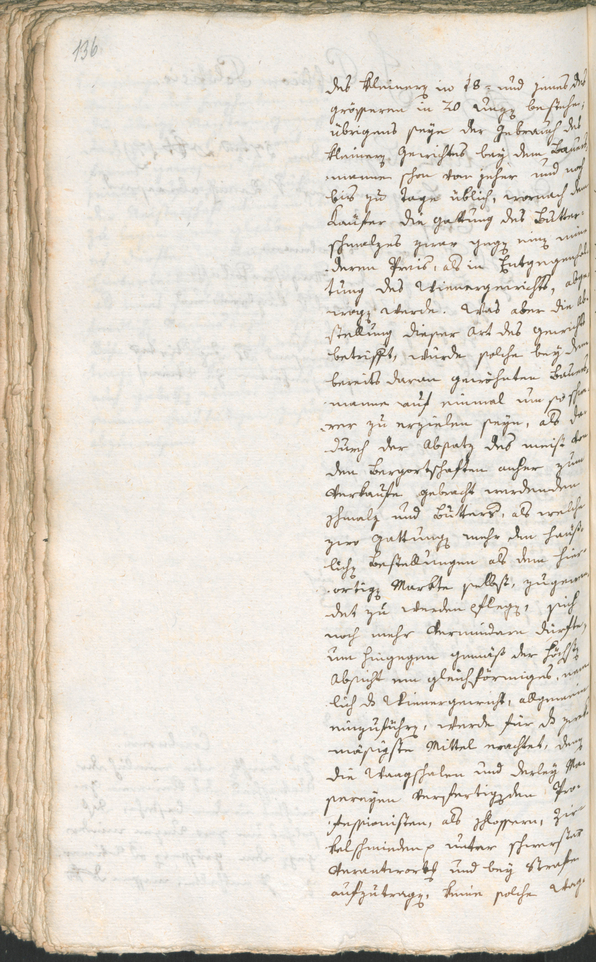 136.
des kleinern in 18= und jenes des
grösseren in 20 unzen bestehe;
übrigens seye der Gebrauch des
kleinern Gewichtes bey dem Bauers
manne schon von jeher und noch
bis zu Tage üblich, wornach dem
Käufer die gattung des Butter=
schmalzes zwar gegen einen min
deren Preis, als in Entgegenhal
tung des Wienergewichts, abge
wogen werde. Was aber die Ab
stellung dieser Art des gewichts
betrifft, würde solche bey dem
bereits daran gewöhnten Bauers
manne auf einmal um so schwe
rer zu erzielen seyn, als da
durch der Absatz des meist von
den Bergortschaften anher zum
Verkaufe gebracht werdenden
schmalz und Butters, als welche
zwo gattungen mehr den häus
lichen Bestellungen als dem hier
ortigen Markte selbst, zugewen
det zu werden pflegen, sich
noch mehr vermindern dürfte,
um hingegen gemäß der höchsten
Absicht ein gleichförmiges, nem
lich das Wienergewicht, allgemein
einzuführen, werde für das zweck
mäsigste Mittel erachtet, denen
die Waagschalen und derley
verfertigenden Pro=
fessionisten, als schlossern, Zir
kelschmieden unter schwerster
Verantwortung und bey Strafe
aufzutragen, keine solche Waag